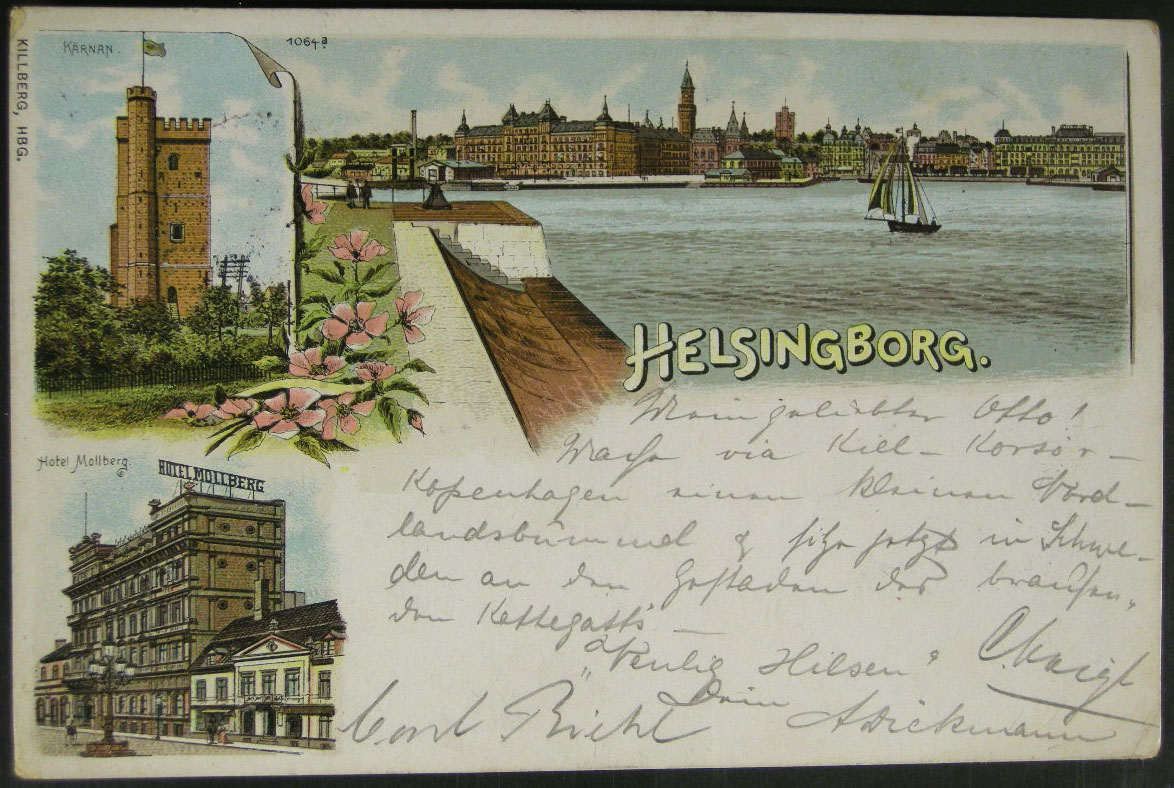 KÄRNAN.
1064a
KILLBERG, HBG.
HELSINGBORG.
Hotel Mollberg
HOTEL MOLLBERG
Mein geliebter Otto!
Mache via Kiel - Korsör -
Kopenhagen einen kleinen Nord-
landsbummel & sitze jetzt in Schwe-
den an den Gestaden des brausen-
den Kattegatts -
"Venlig Hilsen"
Dein
Carl Biehl
ADickmann